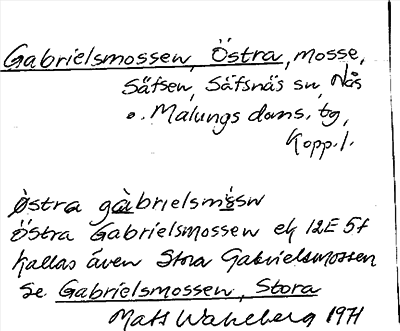 Gabrielsmossen, Östra, mosse,
Säfsen, Säfsnäs sn, Nås
o. Malungs doms. tg,
Kopp. l.
östra gàbrielsmåsn
Östra Gabrielsmossen ek 12E 5f
kallas även Stora Gabrielsmossen
Se Gabrielsmossen, Stora
Mats Wahlberg 1971